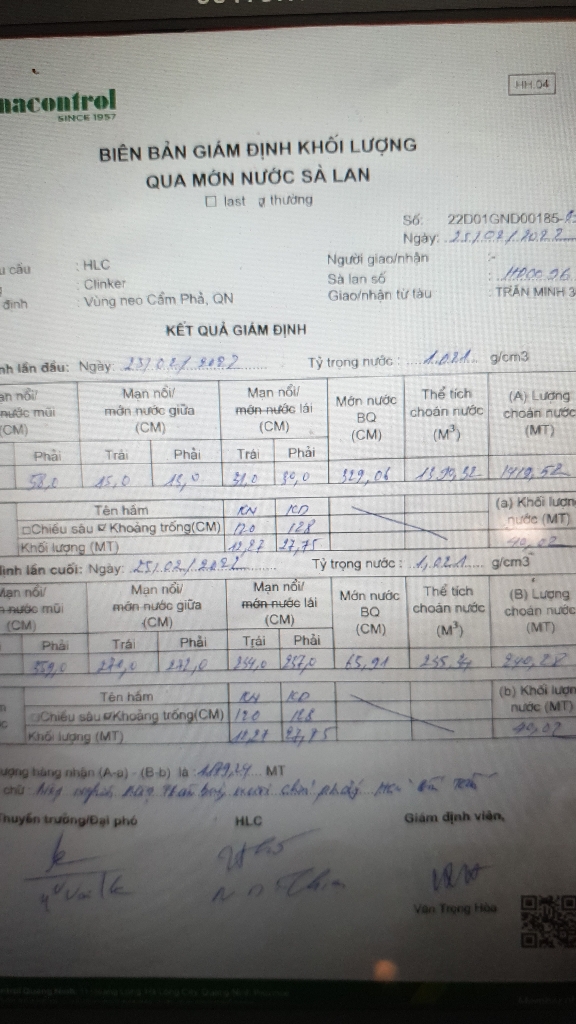 nacontrol
SINCE 1957
HH 04
BIÊN BẢN GIÁM ĐỊNH KHỐI LƯỢNG
QUA MỚN NƯỚC SÀ LAN
last thường
Số: 22D01GND00185-
Ngày: 25/02/2022
u cầu : HLC Người giao/nhận :-
: Clinker Sà lan số :
định : Vùng neo Cẩm Phả, QN Giao/nhận từ tàu : TRẤN MINH 3
KẾT QUẢ GIÁM ĐỊNH
nh lần đầu: Ngày: 23/02/2022 Tỷ trọng nước : 1.021 g/cm3
ạn nổi/ Mạn nổi/ Mạn nổi/ Mớn nước Thể tích (A) Lượng
nước mũi mớn nước giữa mớn nước lái BQ choán nước choán nước
(CM) (CM) (CM) (CM) (M3) (MT)
Phải Trái Phải Trái Phải
58,0 15,0 15,0 31,0 30,0 329,06 1390,32 1419,52
Tên hầm KN KD (a) Khối lượn
Chiều sâu Khoảng trống(CM) 120 128 nước (MT)
Khối lượng (MT) 12,27 27,75 40,02
định lần cuối: Ngày: 25/02/2022 Tỷ trọng nước : 1,021 g/cm3
Mạn nổi/ Mạn nổi/ Mạn nổi/ Mớn nước Thể tích (B) Lượng
nước mũi mớn nước giữa mớn nước lái BQ choán nước choán nước
(CM) (CM) (CM) (CM) (M3) (MT)
Phải Trái Phải Trái Phải
359,0 272,0 257,0 65,91 235,34 240,28
Tên hầm KN KD (b) Khối lượn
Chiều sâu Khoảng trống(CM) 120 128 nước (MT)
Khối lượng (MT) 12,27 27,75 40,02
ượng hàng nhận (A-a) - (B-b) là : 1179,24 MT
chữ: Một nghìn Một trăm bảy mươi chín phẩy Hai
Thuyền trưởng/Đại phó HLC Giám định viên,
Văn Trọng Hòa